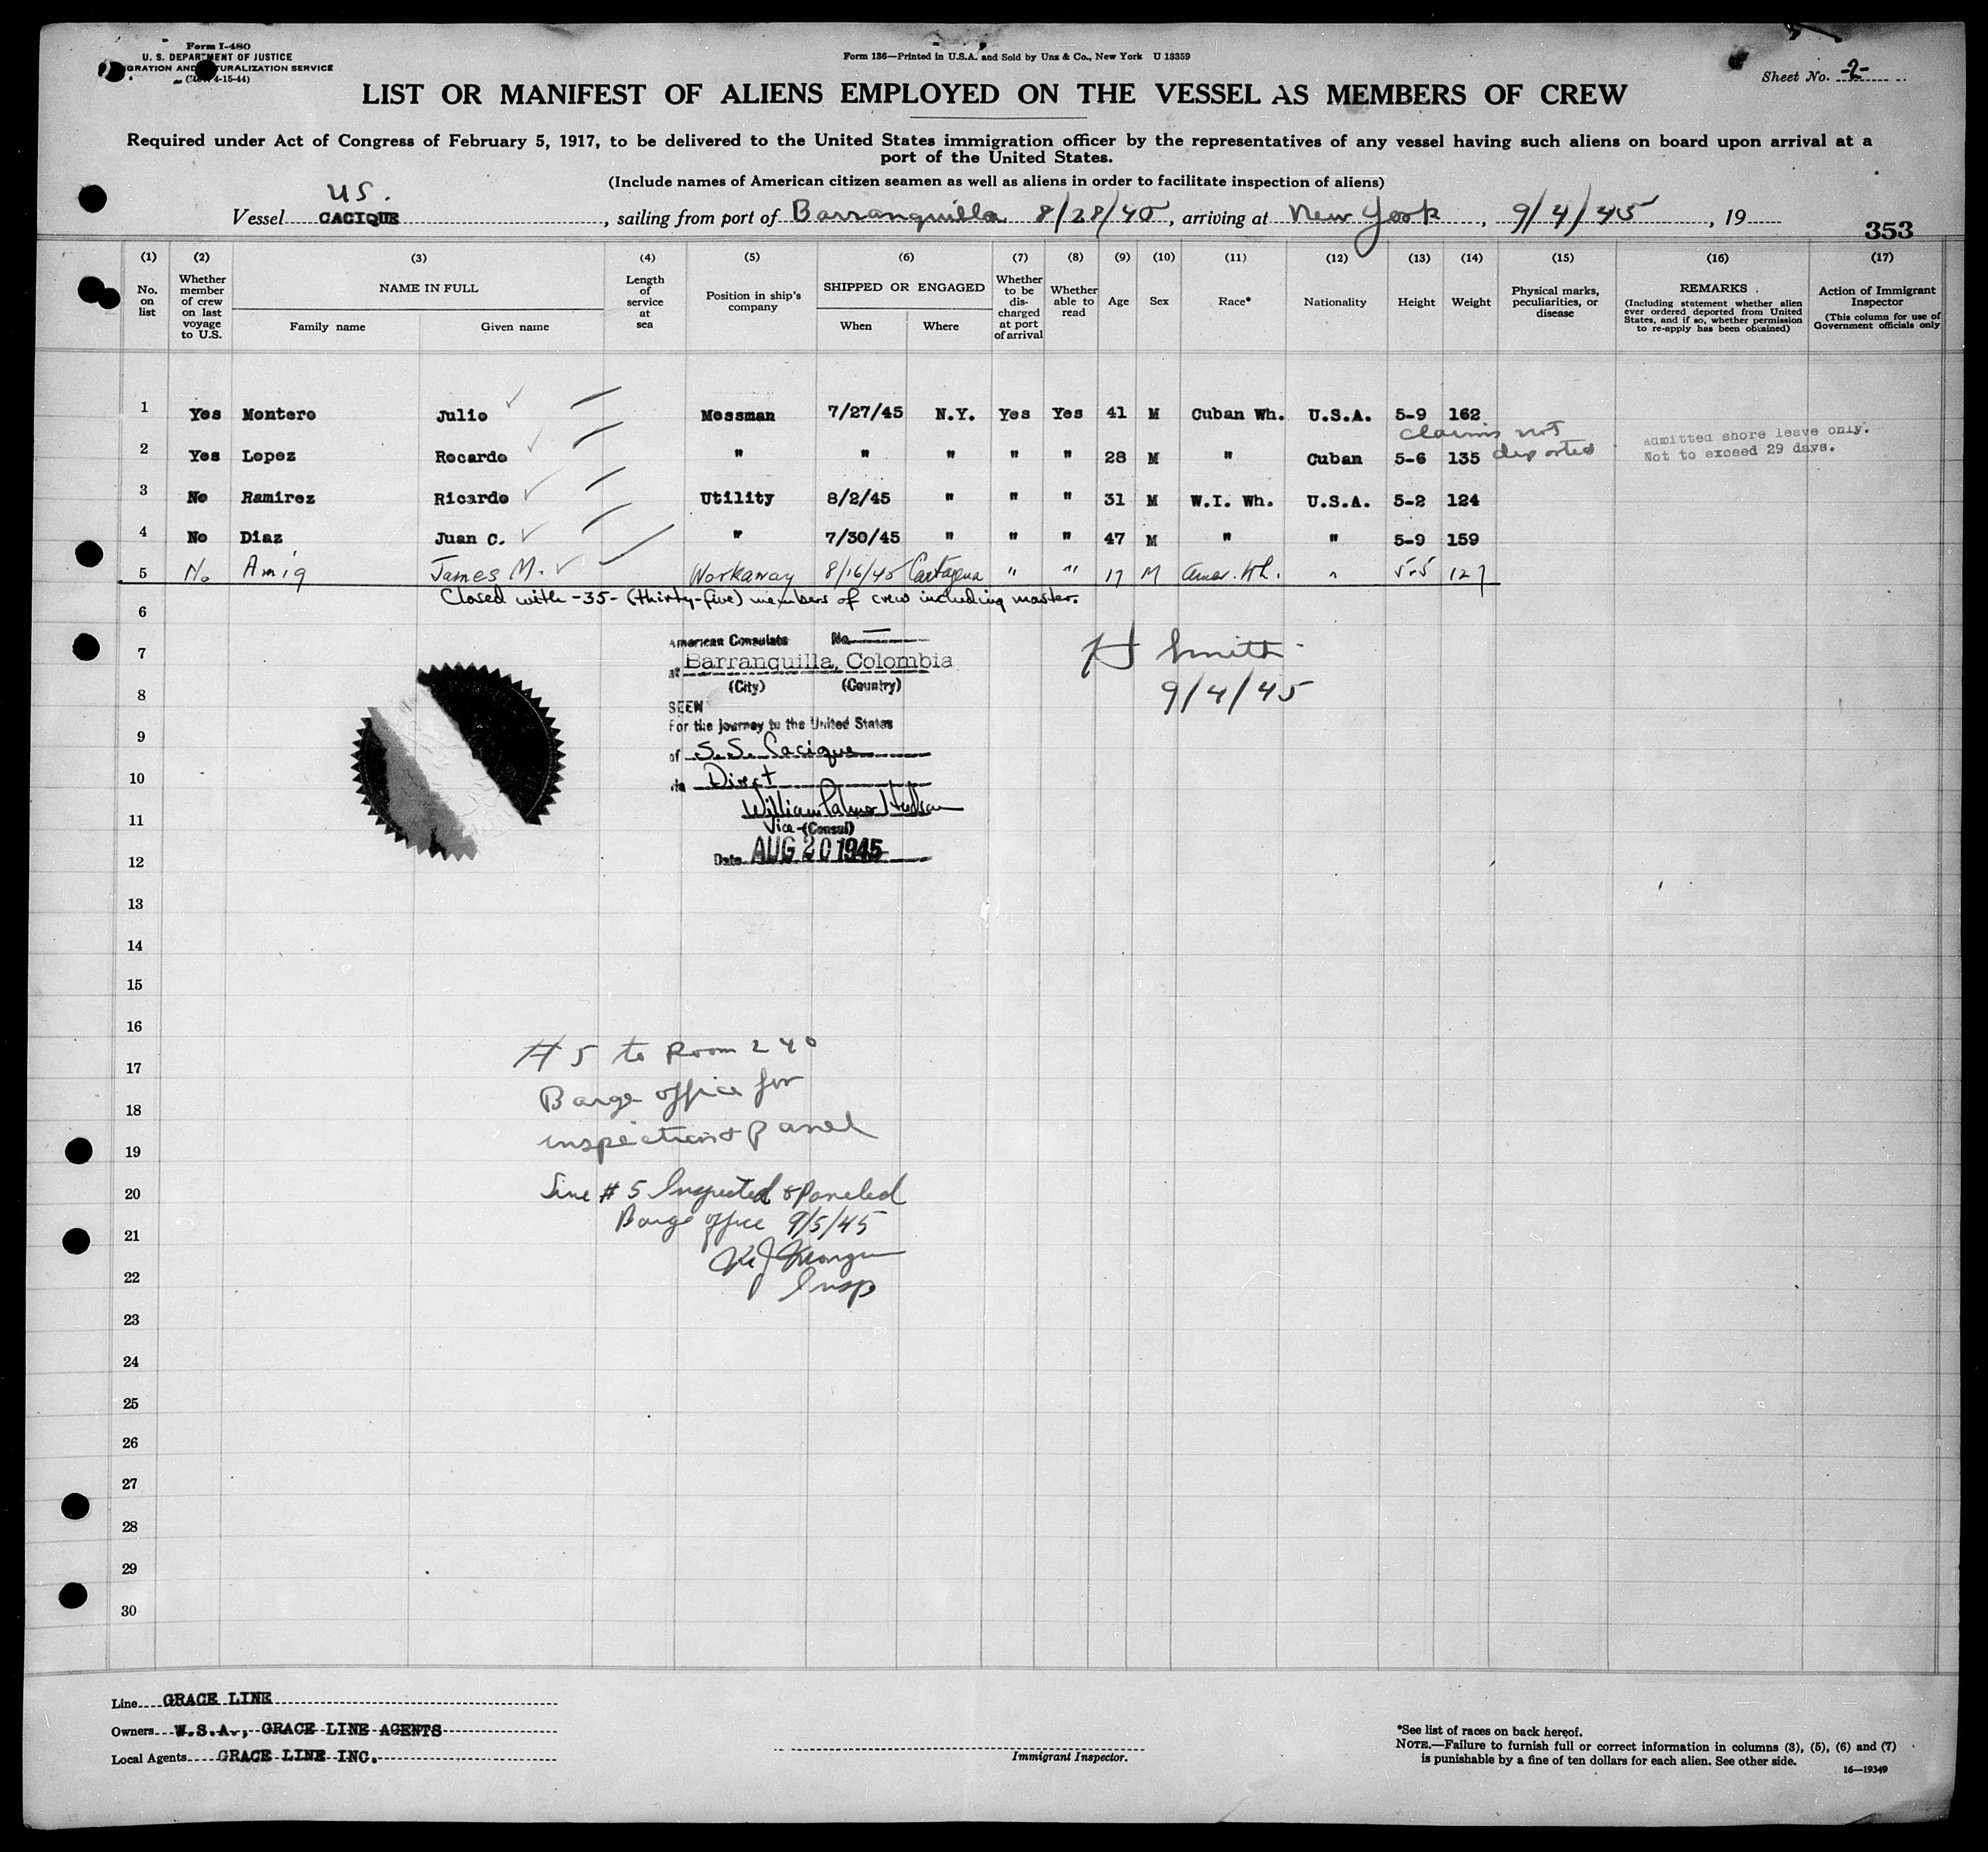 Form I-480
U. S. DEPARTMENT OF JUSTICE
IMMIGRATION AND NATURALIZATION SERVICE
4-15-44)
Form 136—Printed in U.S.A. and Sold by Unz & Co., New York U 13359
Sheet No. -2-
LIST OR MANIFEST OF ALIENS EMPLOYED ON THE VESSEL AS MEMBERS OF CREW
Required under Act of Congress of February 5, 1917, to be delivered to the United States immigration officer by the representatives of any vessel having such aliens on board upon arrival at a
port of the United States.
(Include names of American citizen seamen as well as aliens in order to facilitate inspection of aliens)
US.
Vessel CACIQUE, sailing from port of Barranquilla 8/28/45, arriving at New York, 9/4/45, 19
353
(1) (2) (3) (4) (5) (6) (7) (8) (9) (10) (11) (12) (13) (14) (15) (16) (17)
No. on list
Whether member of crew on last voyage to U.S.
NAME IN FULL
Family name Given name
Length of service at sea
Position in ship's company
SHIPPED OR ENGAGED
When Where
Whether to be discharged at port of arrival
Whether able to read
Age
Sex
Race*
Nationality
Height
Weight
Physical marks, peculiarities, or disease
REMARKS
(Including statement whether alien ever ordered deported from United States, and if so, whether permission to re-apply has been obtained)
Action of Immigrant Inspector
(This column for use of Government officials only
1 Yes Montero Julio Messman 7/27/45 N.Y. Yes Yes 41 M Cuban Wh. U.S.A. 5-9 162
claims not
deported
2 Yes Lopez Rocardo " " " " " 28 M " Cuban 5-6 135
Admitted shore leave only.
Not to exceed 29 days.
3 No Ramirez Ricardo Utility 8/2/45 " " " 31 M W.I. Wh. U.S.A. 5-2 124
4 No Diaz Juan C. " 7/30/45 " " " 47 M " " 5-9 159
5 No Amig James M. Workaway 8/16/45 Cartagena " " 17 M Amer. Wh. " 5-5 127
Closed with -35- (thirty-five) members of crew including master.
6
7
8
9
10
11
12
13
14
15
16
17
18
19
20
21
22
23
24
25
26
27
28
29
30
American Consulate No. —
at Barranquilla, Colombia
(City) (Country)
SEEN
For the journey to the United States
of S.S. Cacique
via Direct
William Palmer Hudson
Vice-(Consul)
Date AUG 20 1945
H Smith
9/4/45
# 5 to Room 240
Barge office for
inspection & panel
Line # 5 Inspected & Paneled
Barge office 9/5/45
Insp
Line GRACE LINE
Owners W.S.A., GRACE LINE AGENTS
Local Agents GRACE LINE INC.
Immigrant Inspector.
*See list of races on back hereof.
NOTE.—Failure to furnish full or correct information in columns (3), (5), (6) and (7)
is punishable by a fine of ten dollars for each alien. See other side.
16—19349